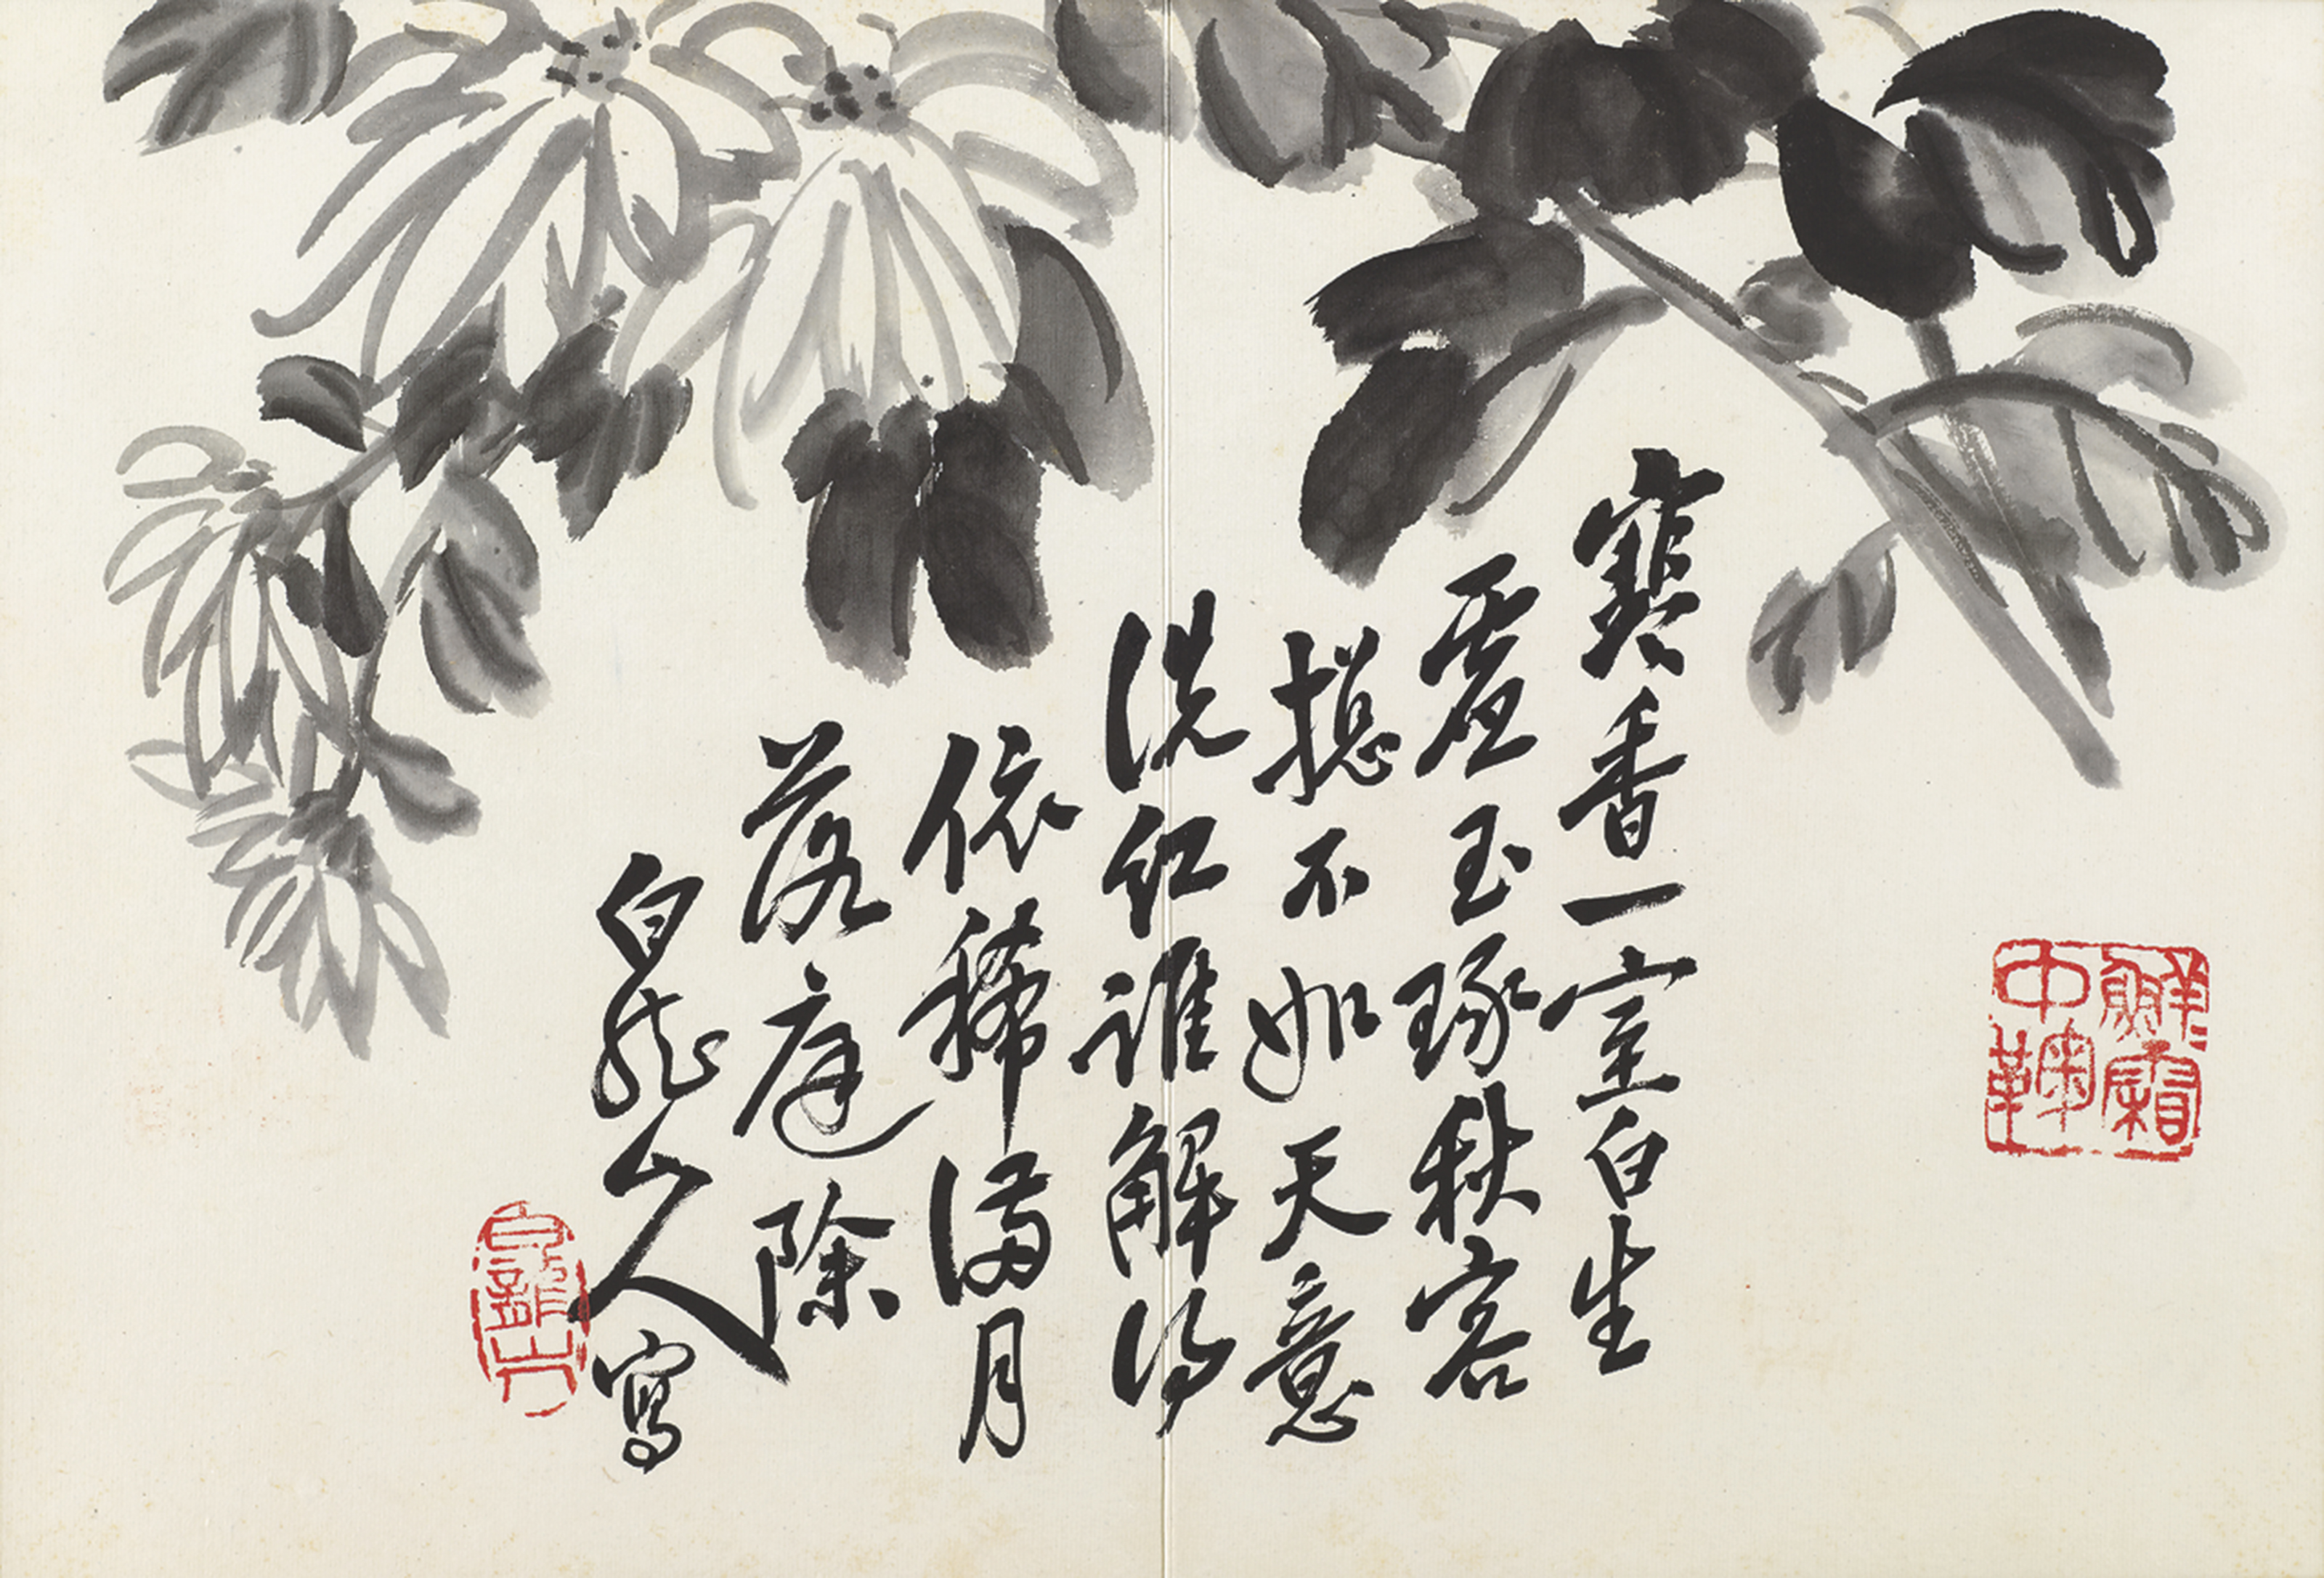 寒香一室白生
虛玉琢秋容
摠不如天意
洗紅誰解得
依稀滿月
落庭除
白龍山人寫
鮮霜中鞠
白龍山人